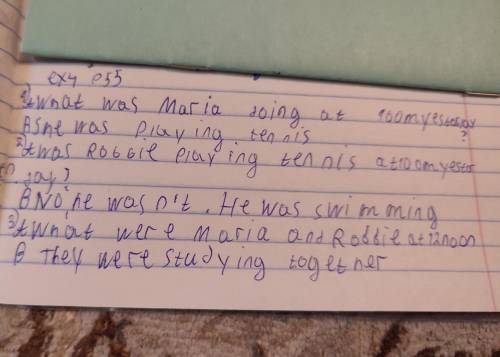 ex4 p55
1) A What was Maria doing at 10 am yesterday?
B She was playing tennis
2) A Was Robbie playing tennis at 10 am yester
day?
B No, he wasn't. He was swimming
3) A What were Maria and Robbie at 12 noon
B They were studying together